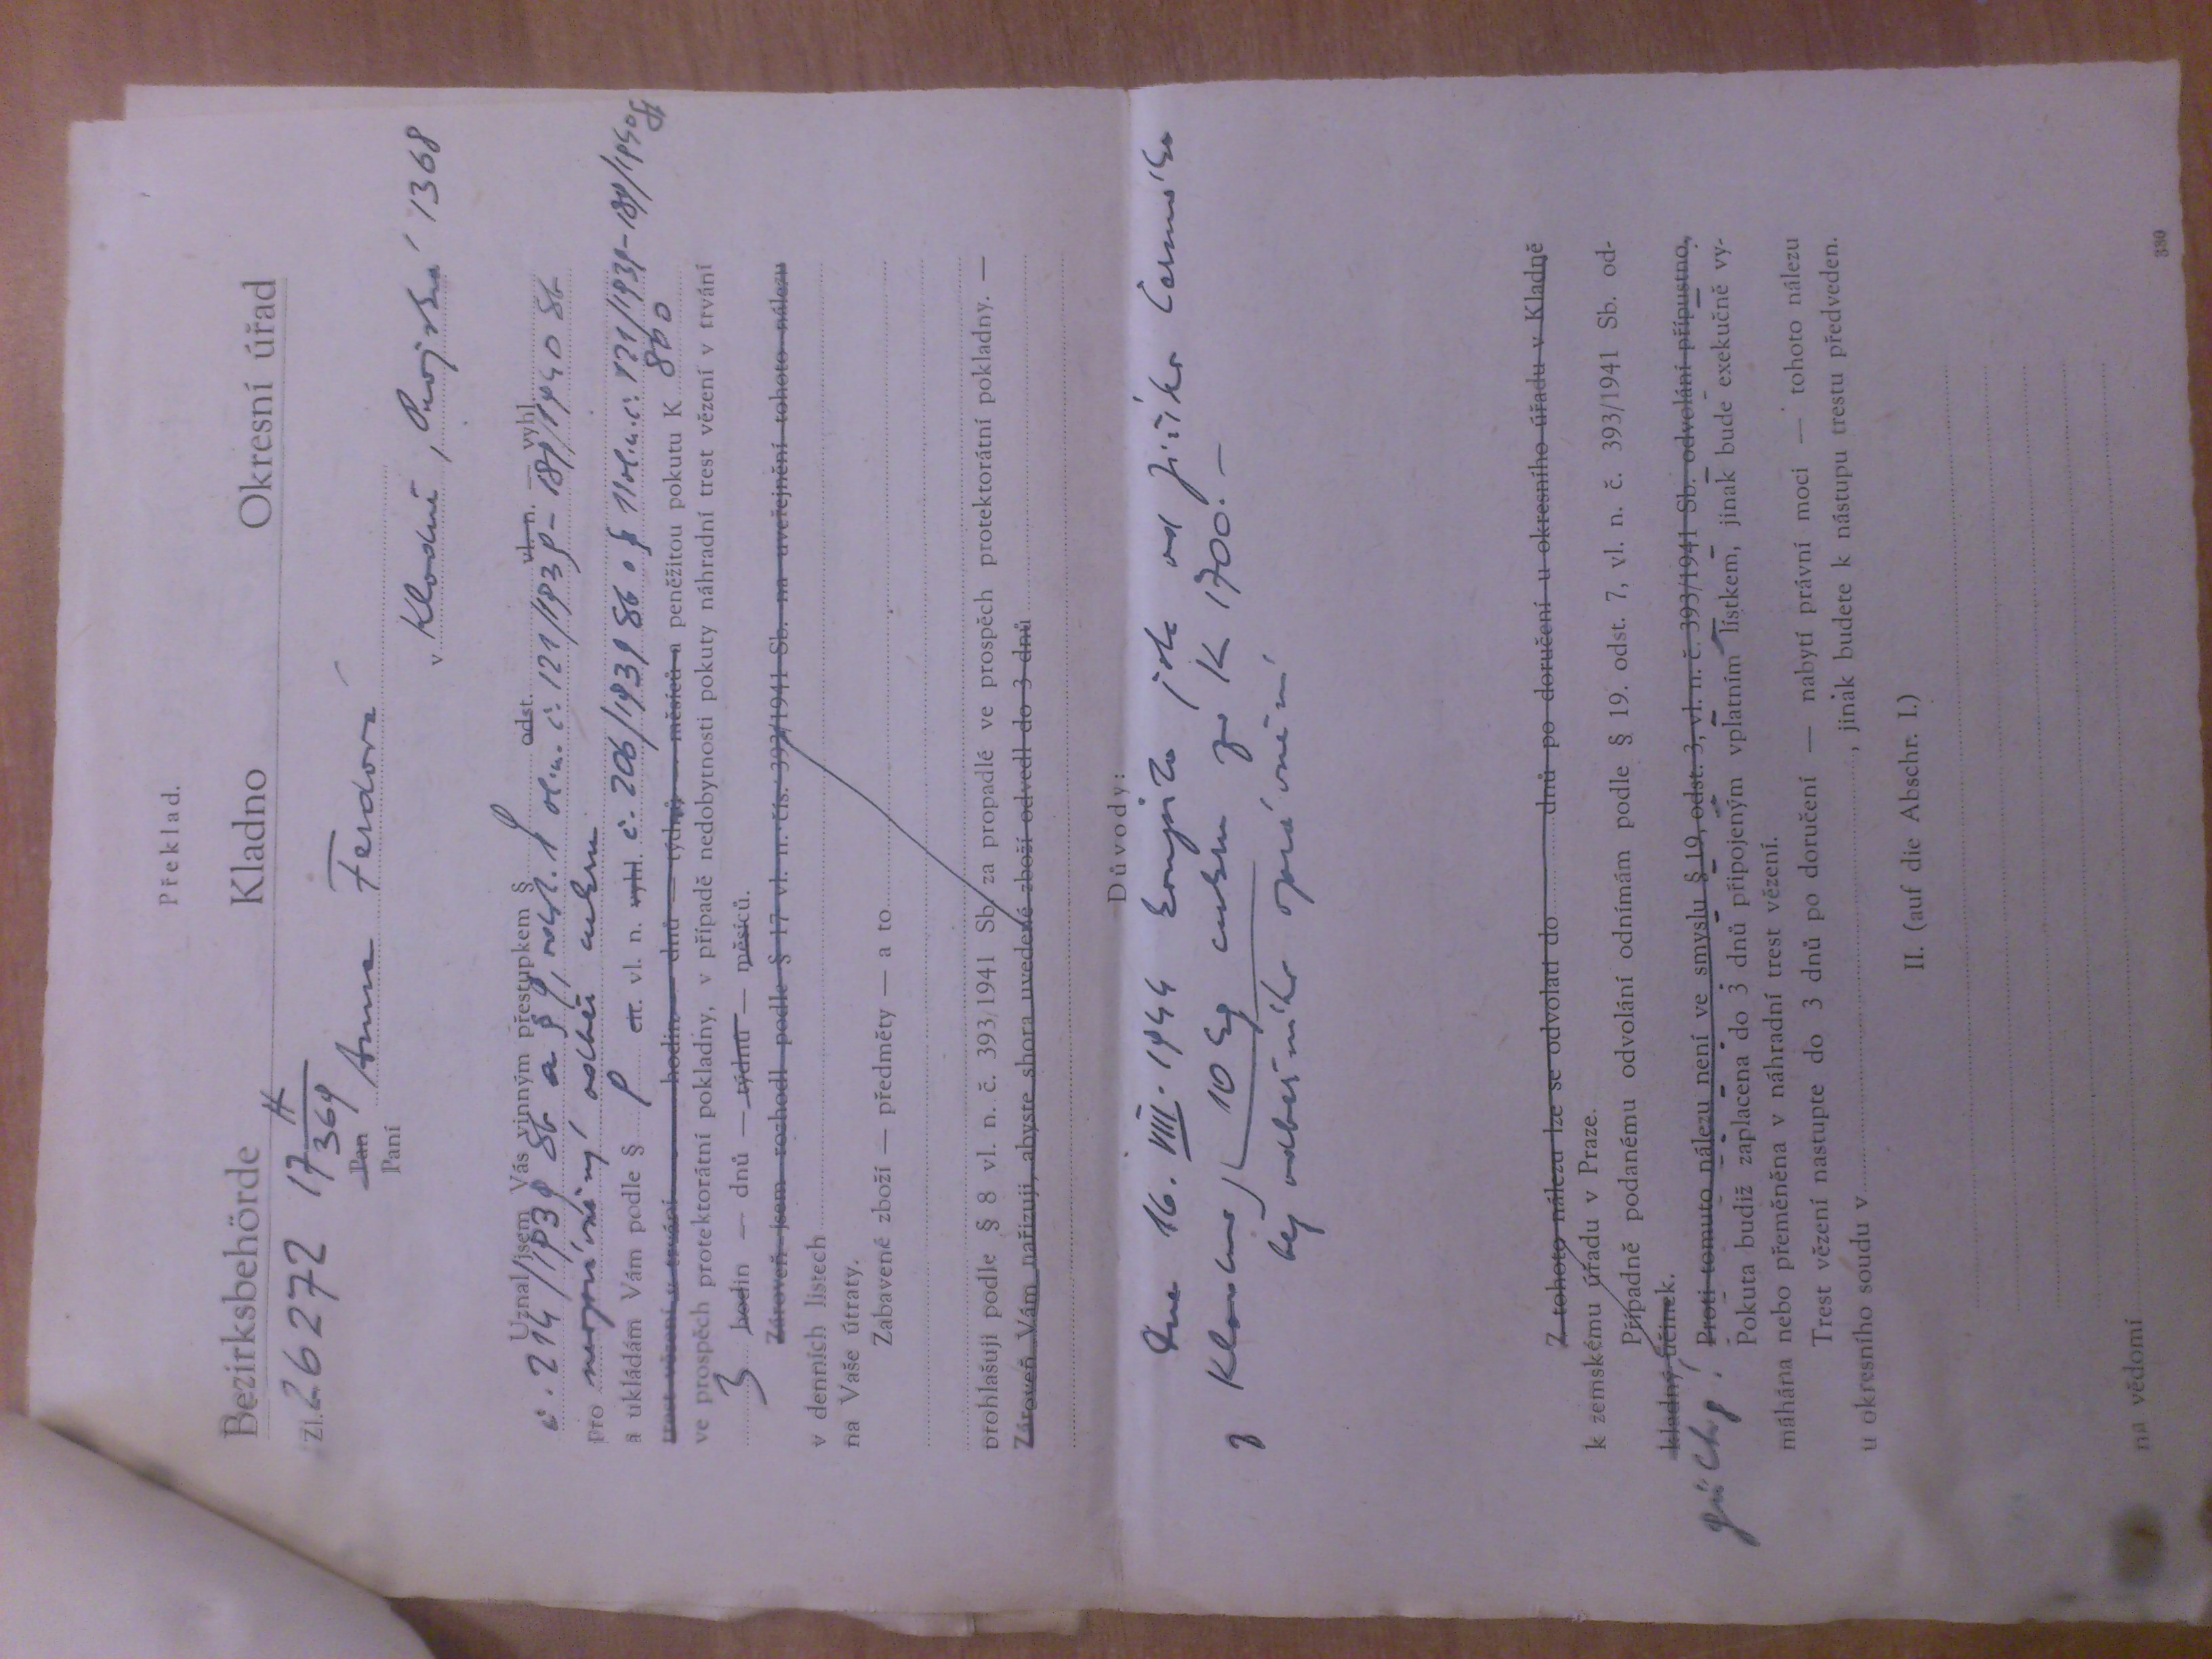 Překlad.
Bezirksbehörde Kladno Okresní úřad
Zl. 26272 17 II/369
Pan Anna Ferdová
Paní
v Kladně, 1368
Uznal jsem Vás vinným přestupkem § 9 odst. vl. n. — vyhl.
č. 214/1939 Sb a § 9, odst. 1 vl. n. č. 121/1939 - 189/1940 Sb
pro neoprávněný odběr cukru
a ukládám Vám podle § 9 cit. vl. n. vyhl. č. 206/1939 Sb a § 11 vl. n. č. 121/1939 - 189/1940 Sb
trest vězení v trvání hodin — dnů — týdnů — měsíců a peněžitou pokutu K 800
ve prospěch protektorátní pokladny, v případě nedobytnosti pokuty náhradní trest vězení v trvání
3 hodin — dnů — týdnů — měsíců.
Zároveň jsem rozhodl podle § 17 vl. n. čís. 393/1941 Sb. na uveřejnění tohoto nálezu
v denních listech
na Vaše útraty.
Zabavené zboží — předměty — a to
prohlašuji podle § 8 vl. n. č. 393/1941 Sb. za propadlé ve prospěch protektorátní pokladny. —
Zároveň Vám nařizuji, abyste shora uvedené zboží odvedl do 3 dnů
Důvody:
Dne 16. VIII. 1944 koupila jste od Jiřího Čermáka
z Kladna 10 kg cukru za K 1700.-
bez odběrního oprávnění
Z tohoto nálezu lze se odvolati do dnů po doručení u okresního úřadu v Kladně
k zemskému úřadu v Praze.
Případně podanému odvolání odnímám podle § 19. odst. 7, vl. n. č. 393/1941 Sb. od-
kladný účinek.
Proti tomuto nálezu není ve smyslu § 19, odst. 3, vl. n. č. 393/1941 Sb. odvolání přípustno.
Pokuta budiž zaplacena do 3 dnů připojeným vplatním lístkem, jinak bude exekučně vy-
máhána nebo přeměněna v náhradní trest vězení.
Trest vězení nastupte do 3 dnů po doručení — nabytí právní moci — tohoto nálezu
u okresního soudu v , jinak budete k nástupu trestu předveden.
II. (auf die Abschr. I.)
na vědomí
380